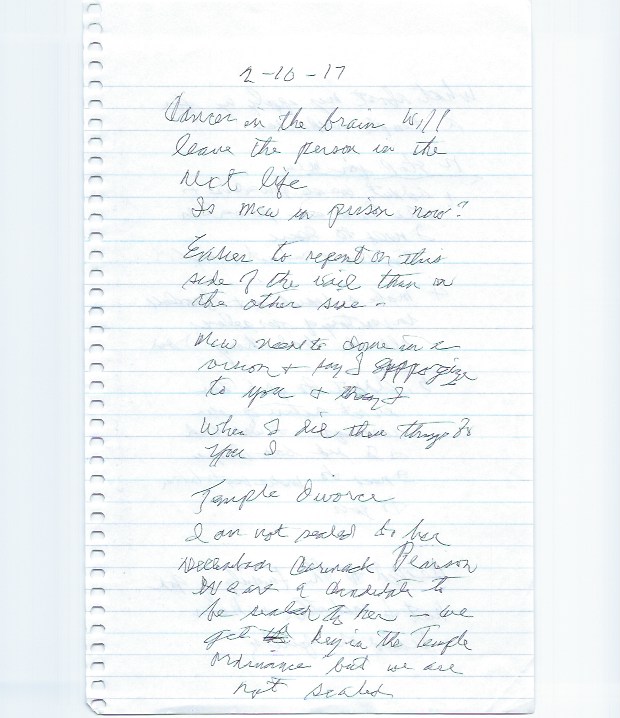 2-10-17
Cancer in the brain will
leave the person in the
next life
Is MCW in prison now?
Easier to repent on this
side of the vail than on
the other side -
MCW to come in a
vision + say I appogize
to you + 
When I die then things to
you I
Temple Divorce
I am not sealed to her
Pearson
We are a candidate to
be sealed to her - we
get key in the Temple
Ordinance but we are
not sealed